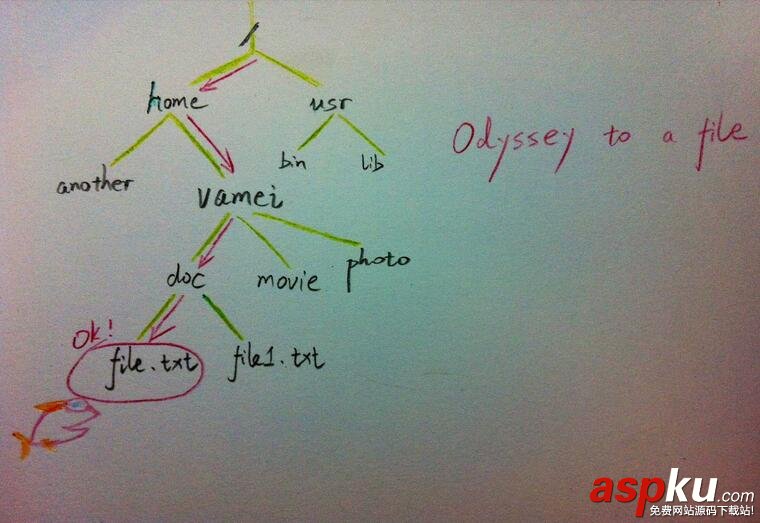 /
home usr
Odyssey to a file
another bin lib
vamei
doc movie photo
Ok!
file.txt file1.txt
aspku.com
免费网站源码下载站!